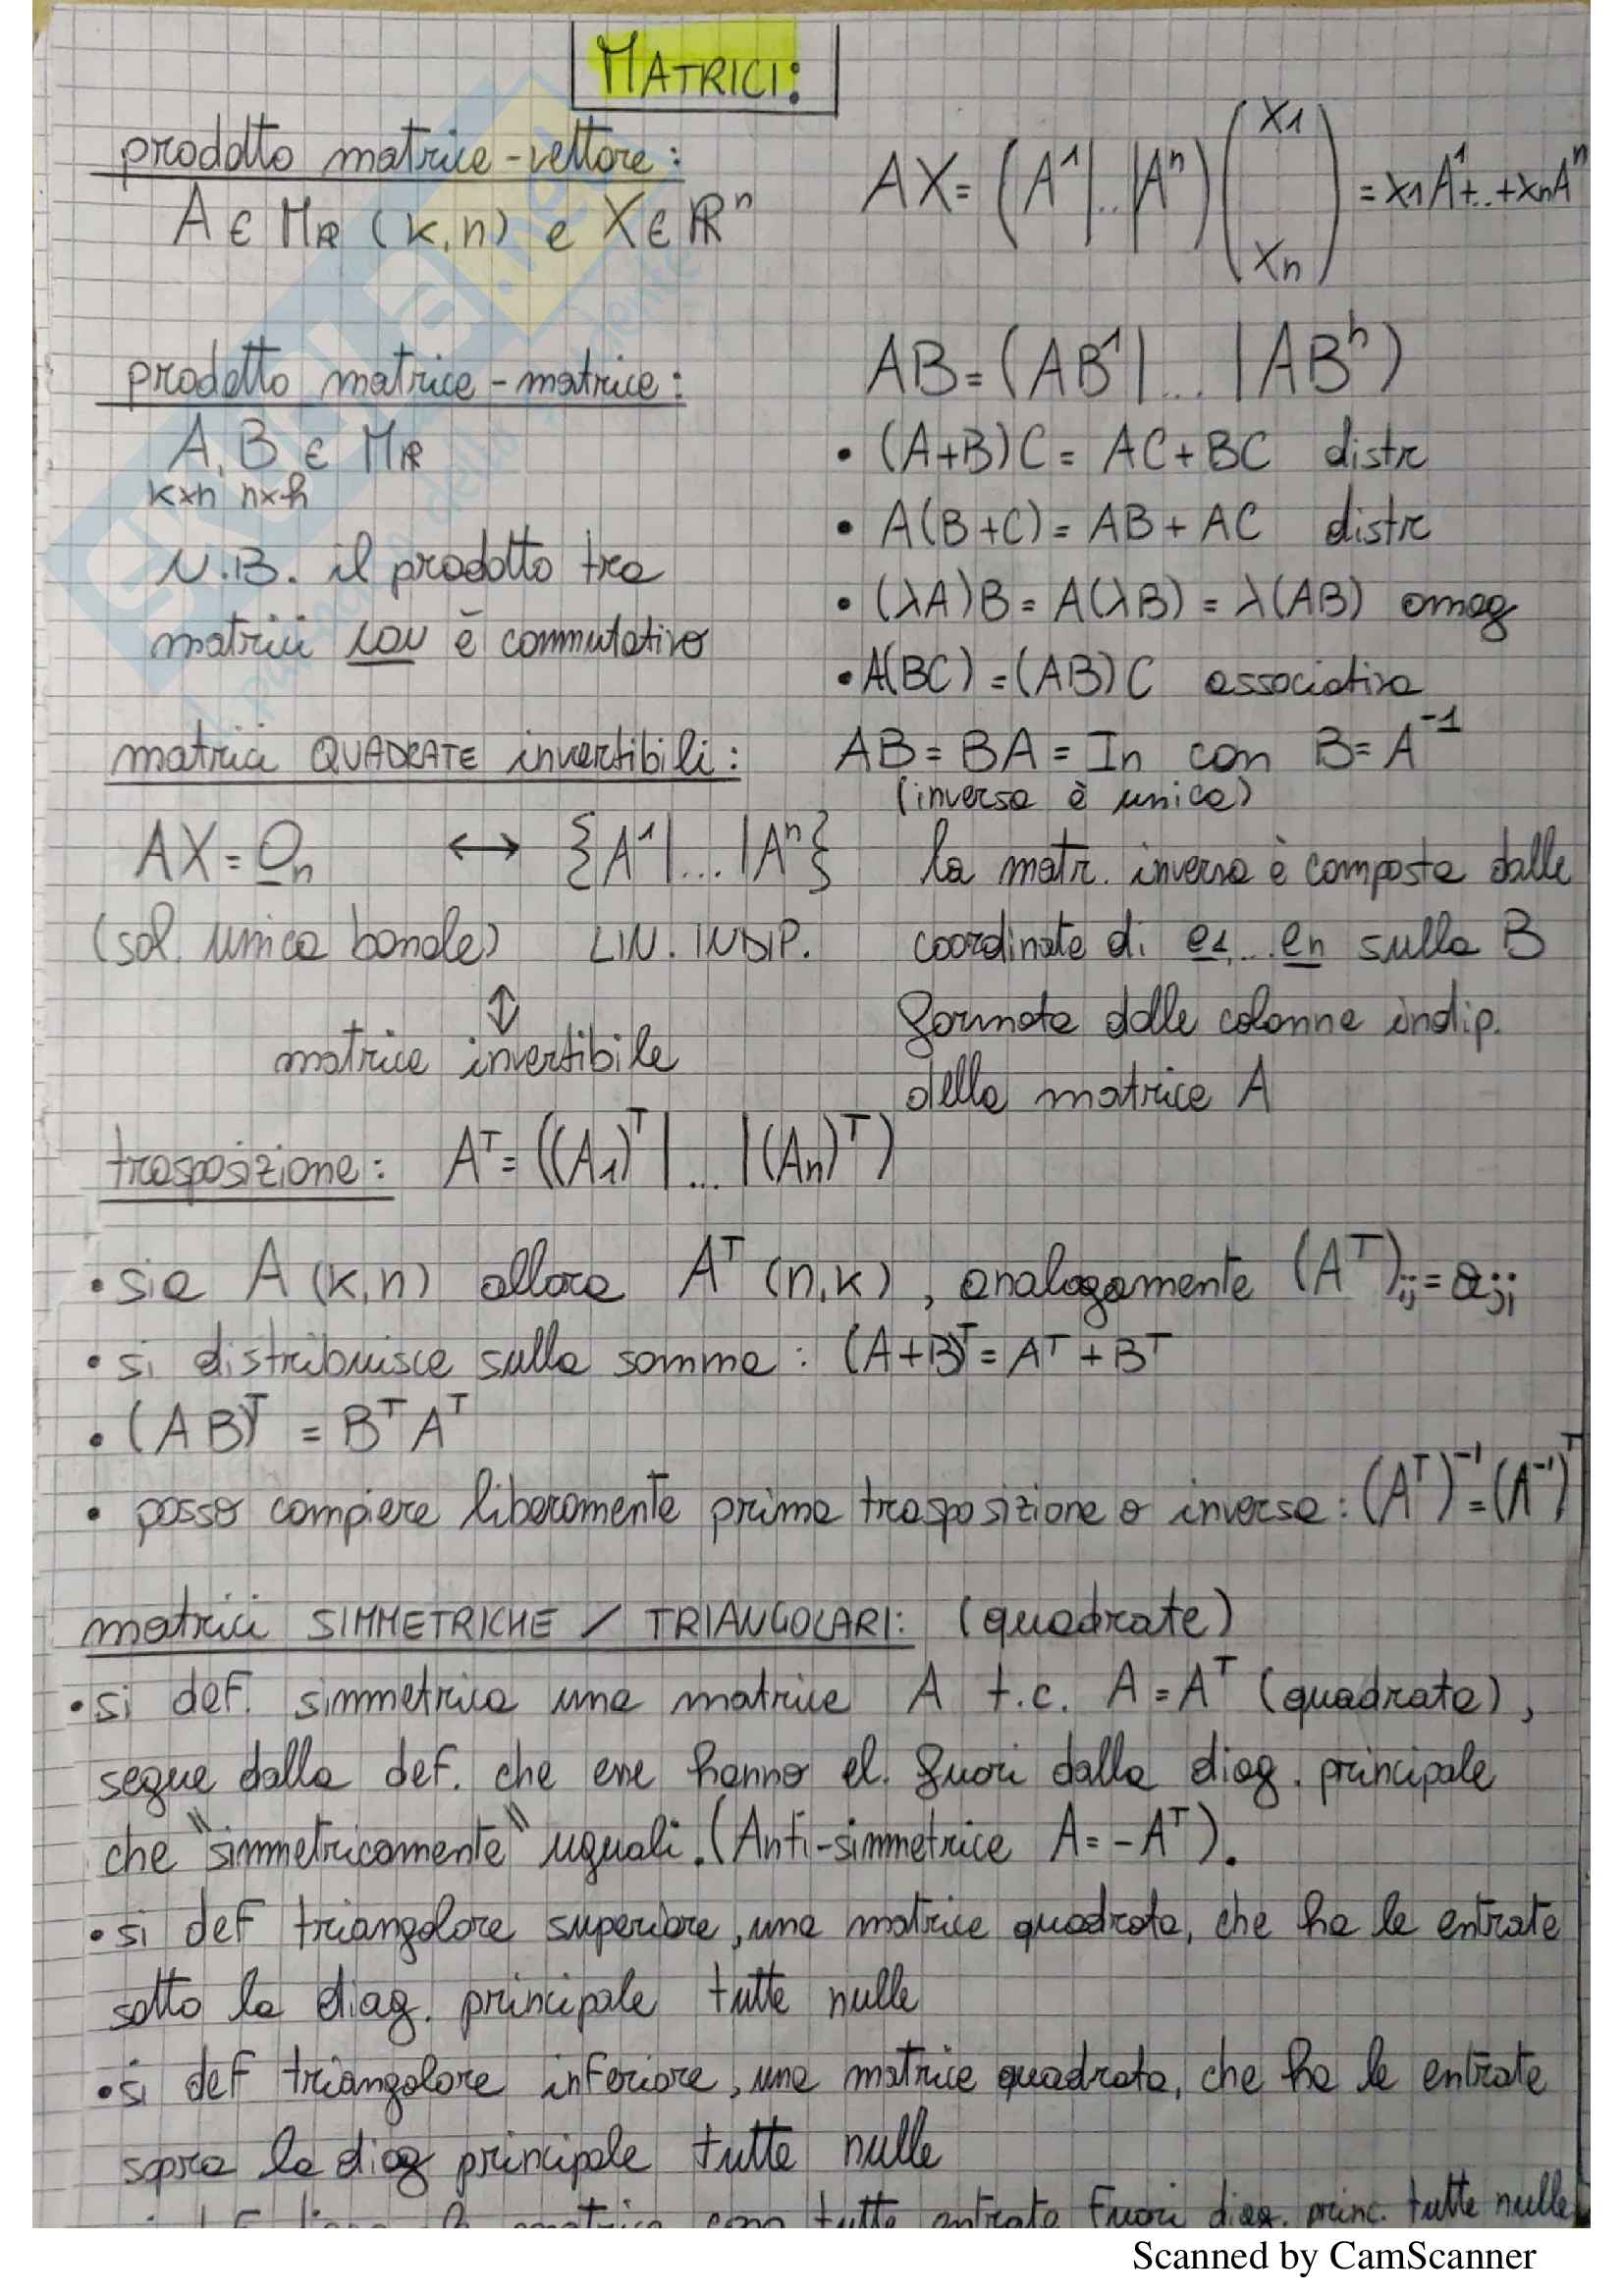 MATRICI:
prodotto matrice-vettore:
A ∈ Mℝ (k,n) e X ∈ ℝⁿ
AX = (A¹|..|Aⁿ) (x1 xn) = x1A¹+..+xnAⁿ
prodotto matrice-matrice:
A, B ∈ Mℝ
k×n n×h
N.B. il prodotto tra
matrici NON è commutativo
AB = (AB¹|...|ABʰ)
• (A+B)C = AC+BC distr
• A(B+C) = AB + AC distr
• (λA)B = A(λB) = λ(AB) omog
• A(BC) = (AB)C associativa
matrici QUADRATE invertibili:
AB = BA = In con B = A⁻¹
(inversa è unica)
AX = On ↔ {A¹|...|Aⁿ}
(sol. unica banale) LIN. INDIP.
↕
matrice invertibile
la matr. inversa è composta dalle
coordinate di e1,...en sulla B
formata dalle colonne indip.
della matrice A
trasposizione: Aᵀ = ((A1)ᵀ|...|(An)ᵀ)
• sia A (k,n) allora Aᵀ (n,k), analogamente (Aᵀ)ij = aji
• si distribuisce sulla somma: (A+B)ᵀ = Aᵀ + Bᵀ
• (AB)ᵀ = BᵀAᵀ
• posso compiere liberamente prima trasposizione o inversa: (Aᵀ)⁻¹ = (A⁻¹)ᵀ
matrici SIMMETRICHE / TRIANGOLARI: (quadrate)
• si def. simmetrica una matrice A t.c. A = Aᵀ (quadrata),
segue dalla def. che hanno el. fuori dalla diag. principale
che "simmetricamente" uguali. (Anti-simmetrica A = -Aᵀ).
• si def triangolare superiore, una matrice quadrata, che ha le entrate
sotto la diag. principale tutte nulle
• si def triangolare inferiore, una matrice quadrata, che ha le entrate
sopra la diag principale tutte nulle
matrice con tutte entrate fuori diag. princ. tutte nulle
Scanned by CamScanner